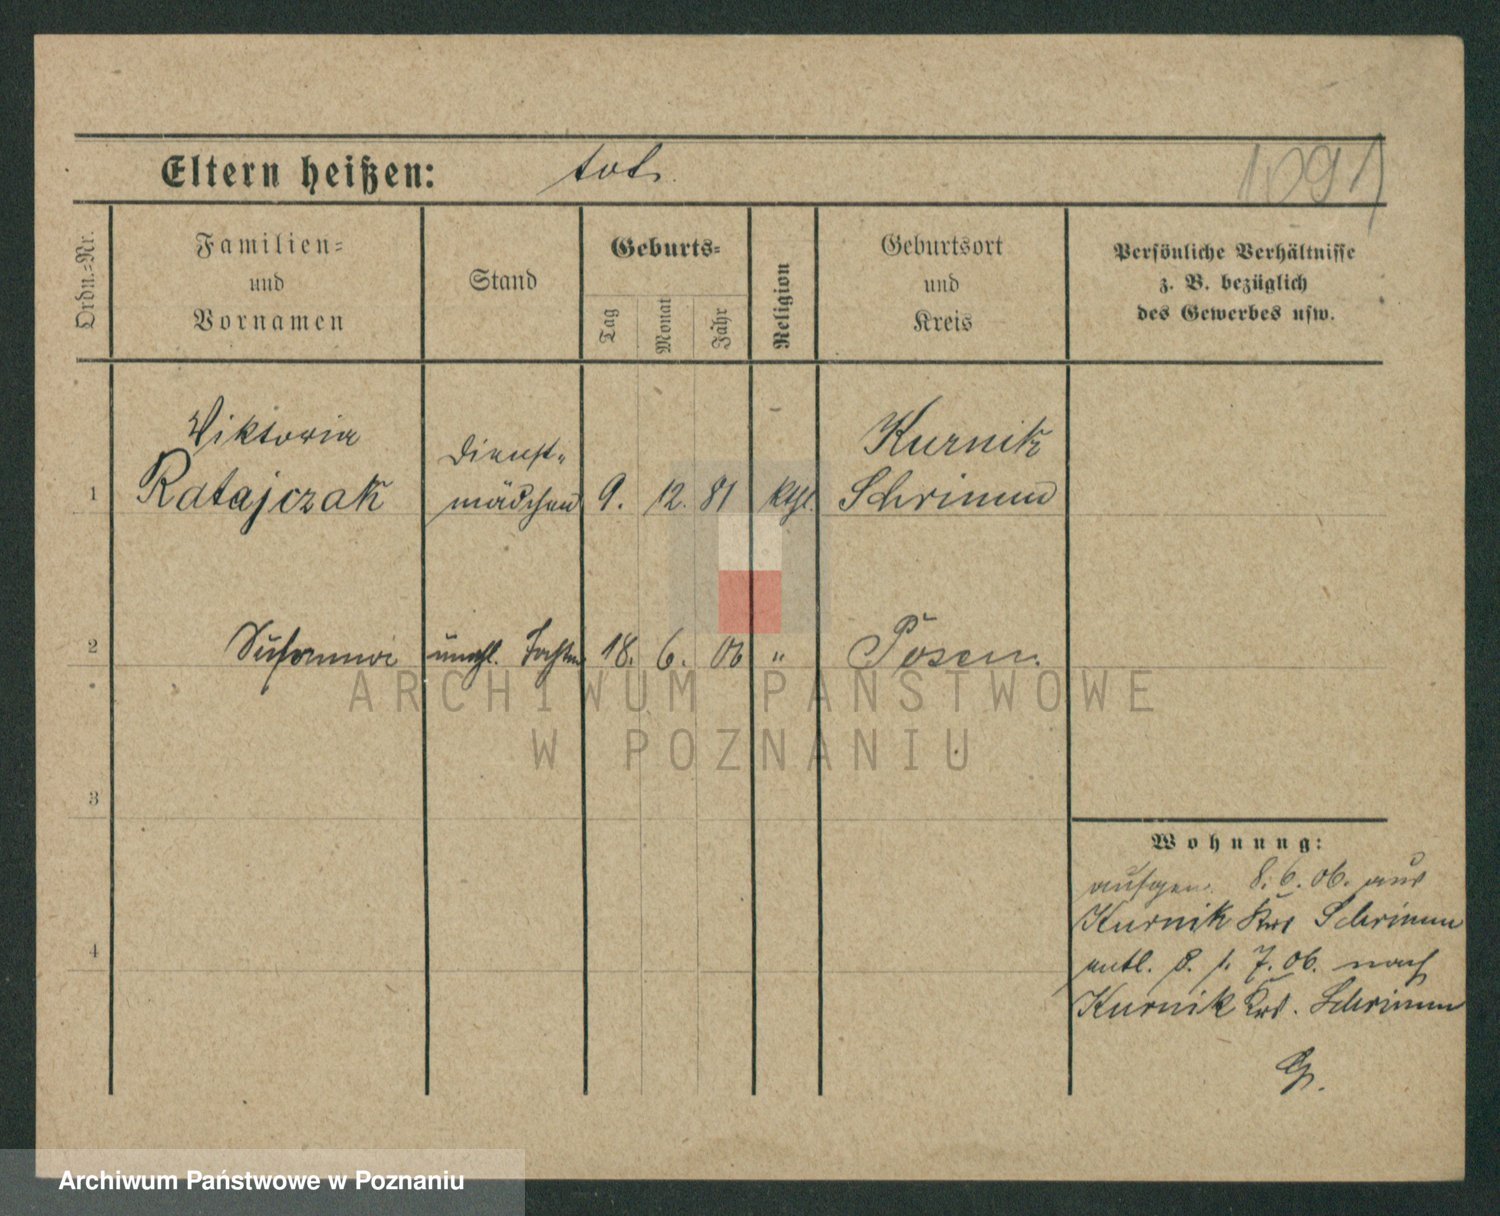 Eltern heißen: tot.
1091
Ordn.=Nr.
Familien=
und
Vornamen
Stand
Geburts=
Tag
Monat
Jahr
Religion
Geburtsort
und
Kreis
Persönliche Verhältnisse
z. B. bezüglich
des Gewerbes usw.
Viktoria
Dienst-
Kurnik
1 Ratajczak mädchen 9. 12. 81 kthl. Schrimm
2 Susanna unehl. Tochter 18. 6. 06 " Posen.
3
4
Wohnung:
aufgen. 8. 6. 06. aus
Kurnik Krs Schrimm
entl. d. 1. 7. 06. nach
Kurnik Krs. Schrimm
ARCHIWUM PAŃSTWOWE
W POZNANIU
Archiwum Państwowe w Poznaniu